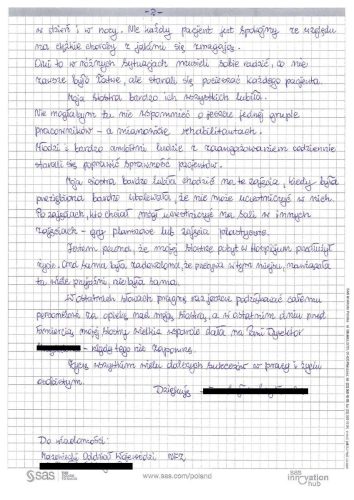 - 2 -
w dzień i w nocy. Nie każdy pacjent jest spokojny ze względu
na ciężkie choroby z jakimi się zmagają.
Oni to w różnych sytuacjach musieli sobie radzić, co nie
zawsze było łatwe, ale starali się pocieszać każdego pacjenta.
Moja siostra bardzo ich wszystkich lubiła.
Nie mogłabym tu nie wspomnieć o jeszcze jednej grupie
pracowników - a mianowicie rehabilitantach.
Młodzi i bardzo ambitni ludzie z zaangażowaniem codziennie
starali się poprawić sprawność pacjentów.
Moja siostra bardzo lubiła chodzić na te zajęcia, kiedy była
przeziębiona bardzo ubolewała, że nie może uczestniczyć w nich.
Po zajęciach, kto chciał mógł uczestniczyć na sali w innych
zajęciach - gry planszowe lub zajęcia plastyczne.
Jestem pewna, że mojej siostrze pobyt w Hospicjum przedłużył
życie. Ona sama była zadowolona, że przebywa w tym miejscu, nawiązała
tu wiele przyjaźni, nie była sama.
W ostatnich słowach pragnę raz jeszcze podziękować całemu
personelowi za opiekę nad moją siostrą, a w ostatnim dniu przed
śmiercią mojej siostry wielkie wsparcie dała mi Pani Dyrektor
- nigdy tego nie zapomnę.
Życzę wszystkim wielu dalszych sukcesów w pracy i życiu
osobistym.
Dziękuję
Do wiadomości:
Mazowiecki Oddział Wojewódzki NFZ
sas
www.sas.com/poland
sas
innovation
hub